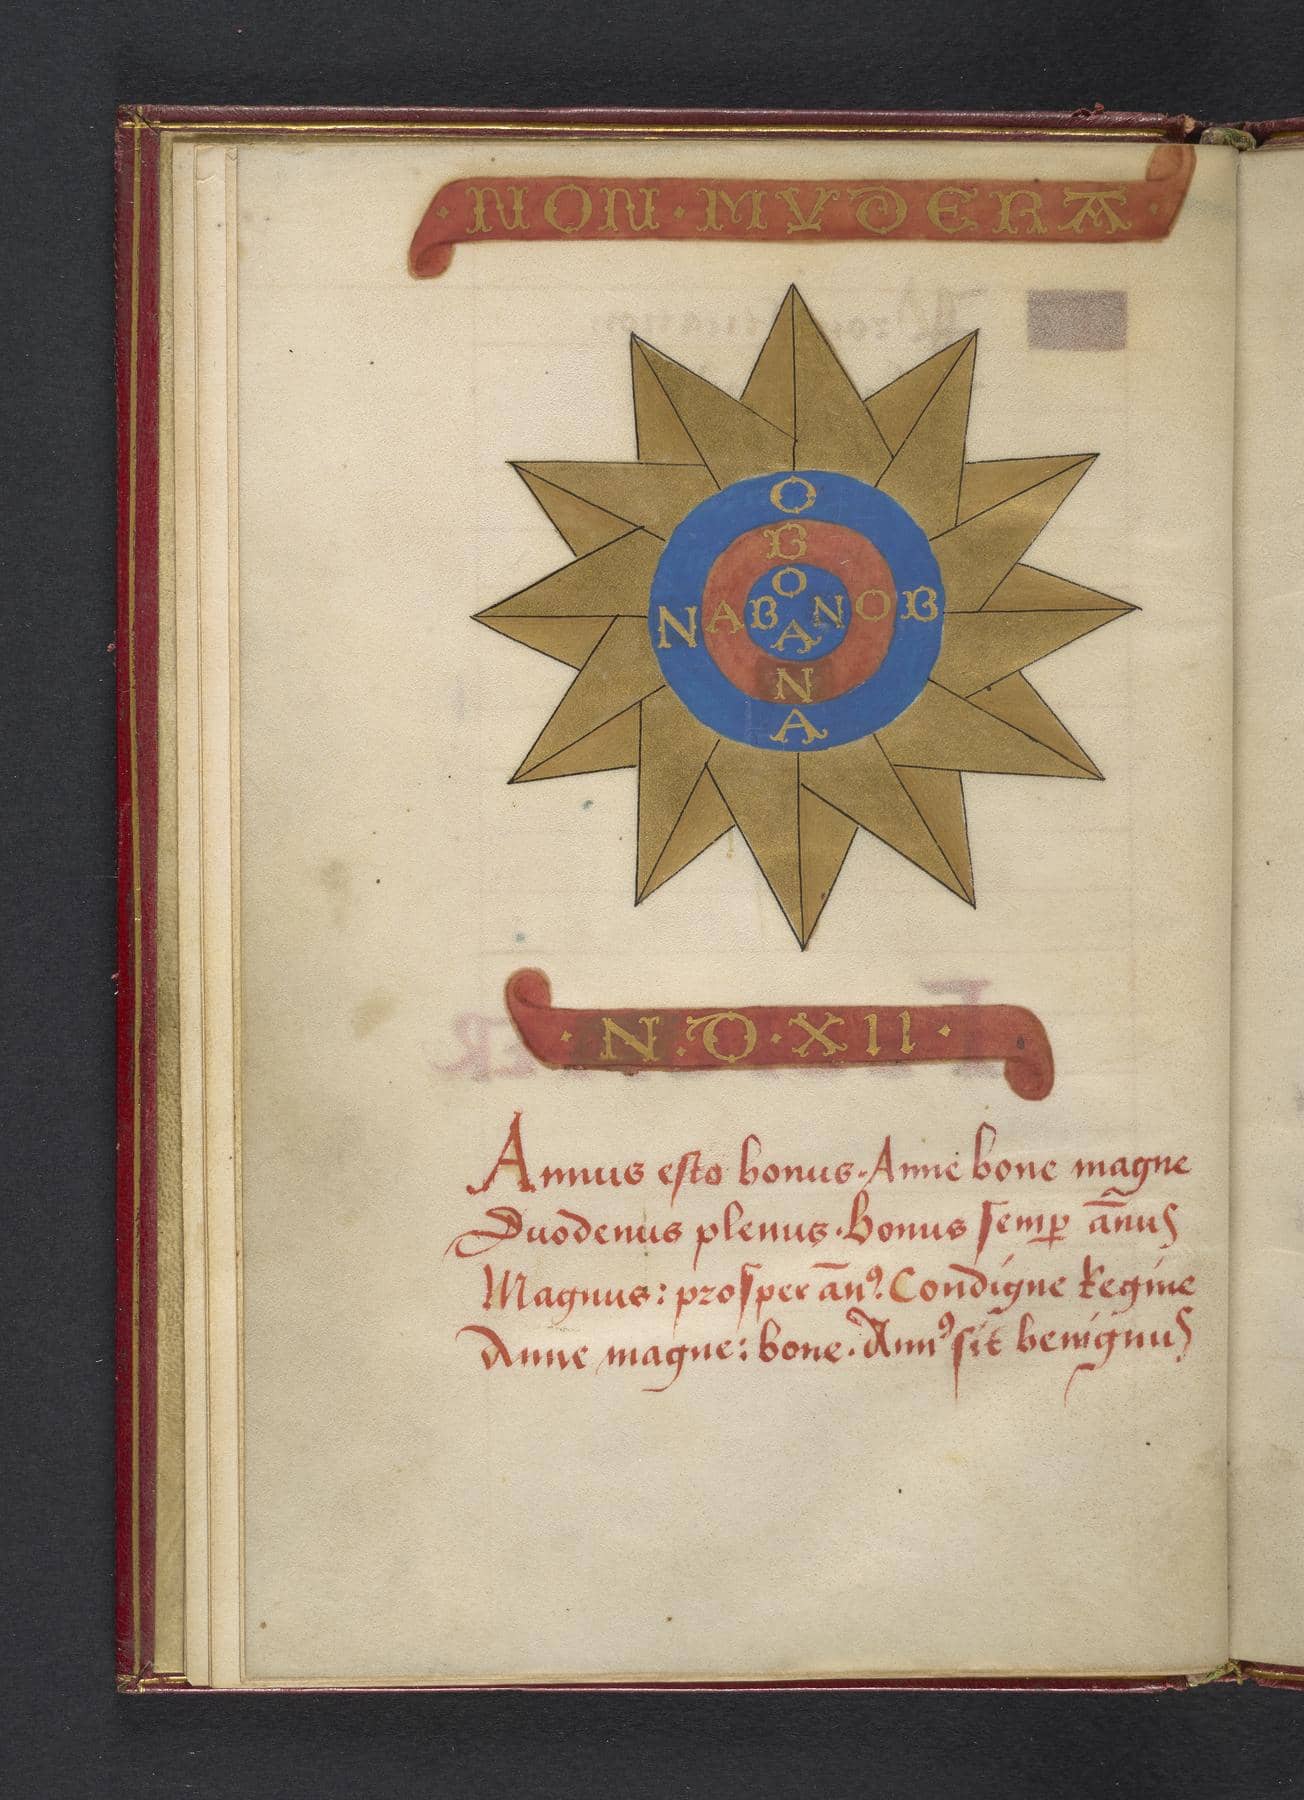 · NON · MVDERA ·
O
B
O
NAB NOB
A
N
A
· N · D · XII ·
Annus esto bonus. Anne bone magne
Duodenus plenus. Bonus semꝑ ãnus
Magnus: prosper ãnꝰ. Condigne Regine
Anne magne: bone. Annꝰ sit benignus